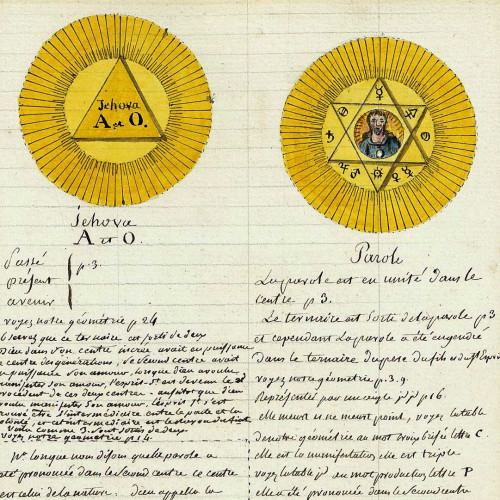 Jehova
A et O.
Jéhova
A et O.
Passé
présent p. 3.
avenir
voyez notre géométrie p 24
observez que ce ternaire est sorti de deux
Dieu dans son centre incréé avait en puissance
centre des générations, le second centre avait
en puissance son amour, lorsque dieu a voulu
manifester son amour, l'esprit-st est devenu le 3e
procédent de ces deux centres
voulu manifester son amour, l'esprit st s'est
trouvé être l'intermédiaire entre le pacte et la
et cet intermédiaire est
voilà comme 3. sont sortis de deux
voyez notre géométrie p 14.
Na lorsque nous disons quelle parole a
été prononcée dans le second centre ce centre
est celui de la nature: dieu appella la
Parole
La parole est en unité dans le
centre p 3.
Le ternaire est sorti de la parole p 3
et cependant la parole a été engendré
dans le ternaire du pere du fils et du st Esprit
voyez notre géométrie p. 3. 9.
Représentée par un aigle p 16.
elle meurt et ne meurt point, voyez la table
de notre géométrie au mot croix lettre C.
elle est la manifestation elle est triple
voyez la table au mot production lettre P
elle a été prononcée dans le second centre